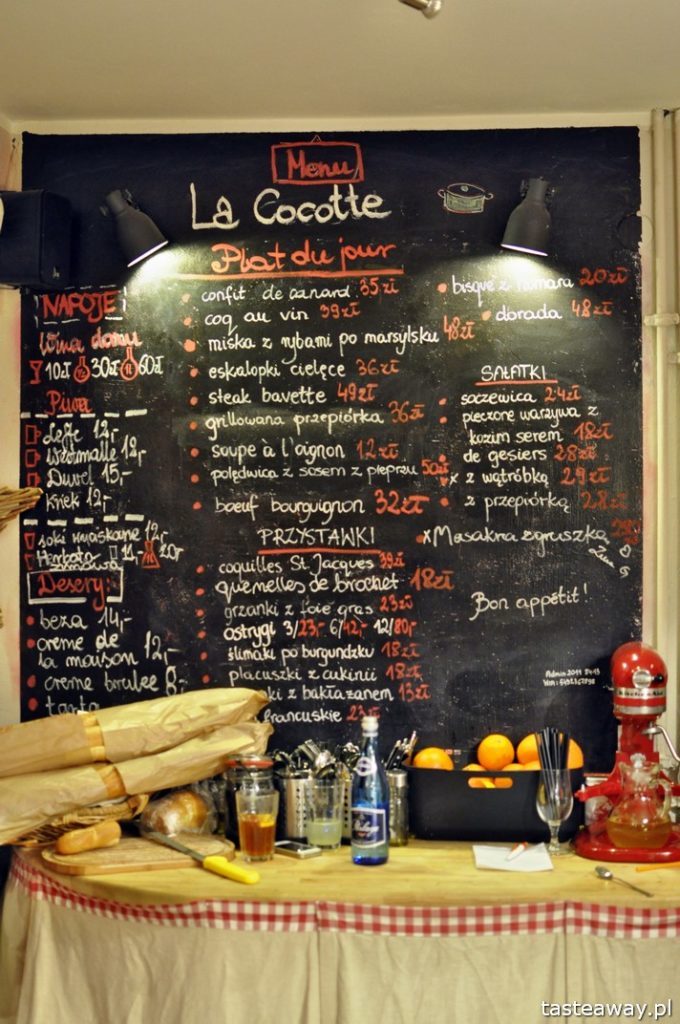 Menu
La Cocotte
Plat du jour
confit de canard 35zł
coq au vin 39zł
miska z rybami po marsylsku 48zł
eskalopki cielęce 36zł
steak bavette 49zł
grillowana przepiórka 36zł
soupe à l'oignon 12zł
polędwica z sosem z pieprzu 50zł
bœuf bourguignon 32zł
PRZYSTAWKI
coquilles St Jacques 39zł
quenelles de brochet 18zł
grzanki z foie gras 23zł
ostrygi 3/23,- 6/42,- 12/80,-
ślimaki po burgundzku 18zł
placuszki z cukinii 18zł
ki z bakłażanem 13zł
francuskie 23zł
NAPOJE
Wina domu
10zł 30zł 1L 60zł
Piwa
Leffe 12,-
Westmalle 12,-
Duvel 15,-
Kriek 12,-
soki 12,-
Herbata zimowa 11,-
Desery
beza 14,-
creme de
la maison 12,-
creme brulee 8,-
tarta
bisque z homara 20zł
dorada 48zł
SAŁATKI
soczewica 24zł
pieczone warzywa z
kozim serem 18zł
de gesiers 28zł
x z wątróbką 29zł
z przepiórką 28zł
x Masakra z gruszką
Bon appétit!
KitchenAid
tasteaway.pl